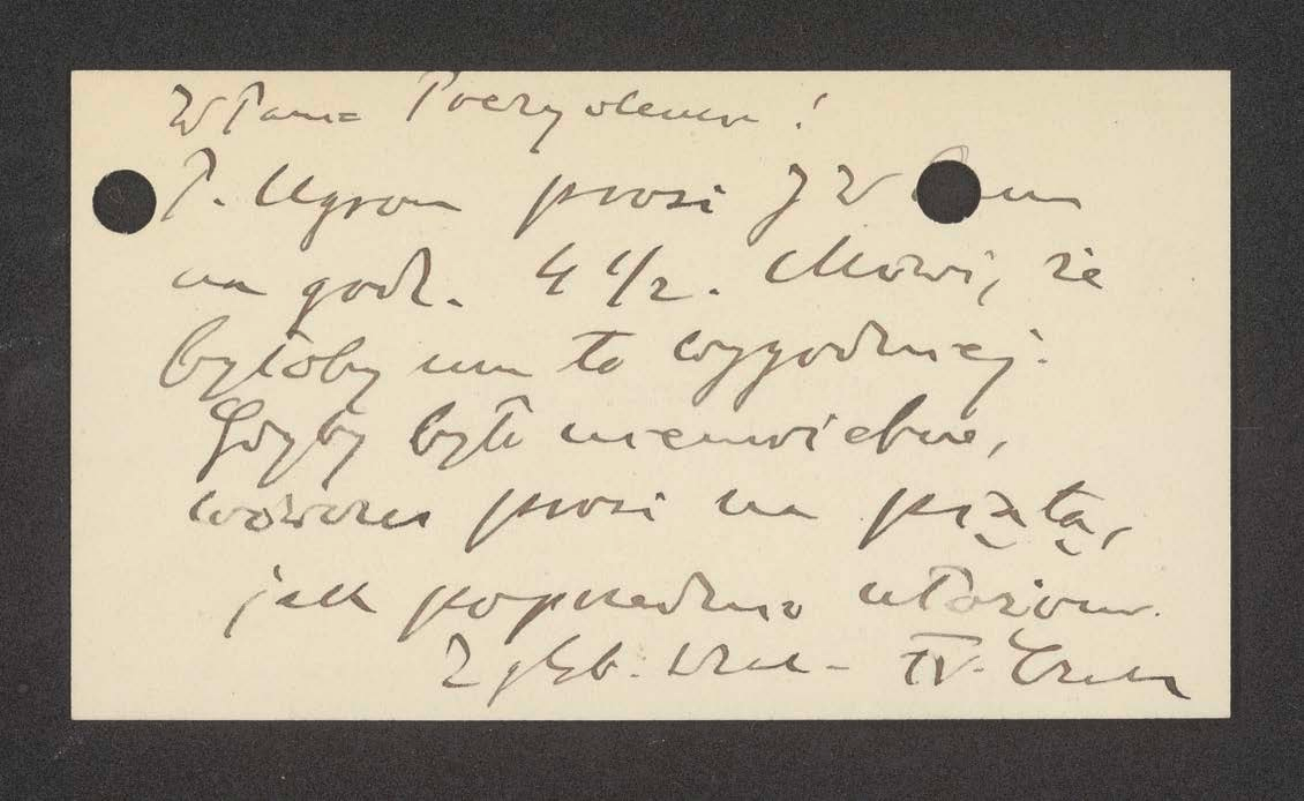 P. Ugron prosi J W
na godz. 4 1/2. Mówi, że
byłoby mu to wygodniej.
Gdyby było niemożebne,
wówczas prosi na piątą,
jak poprzednio ułożono.
Z głęb.